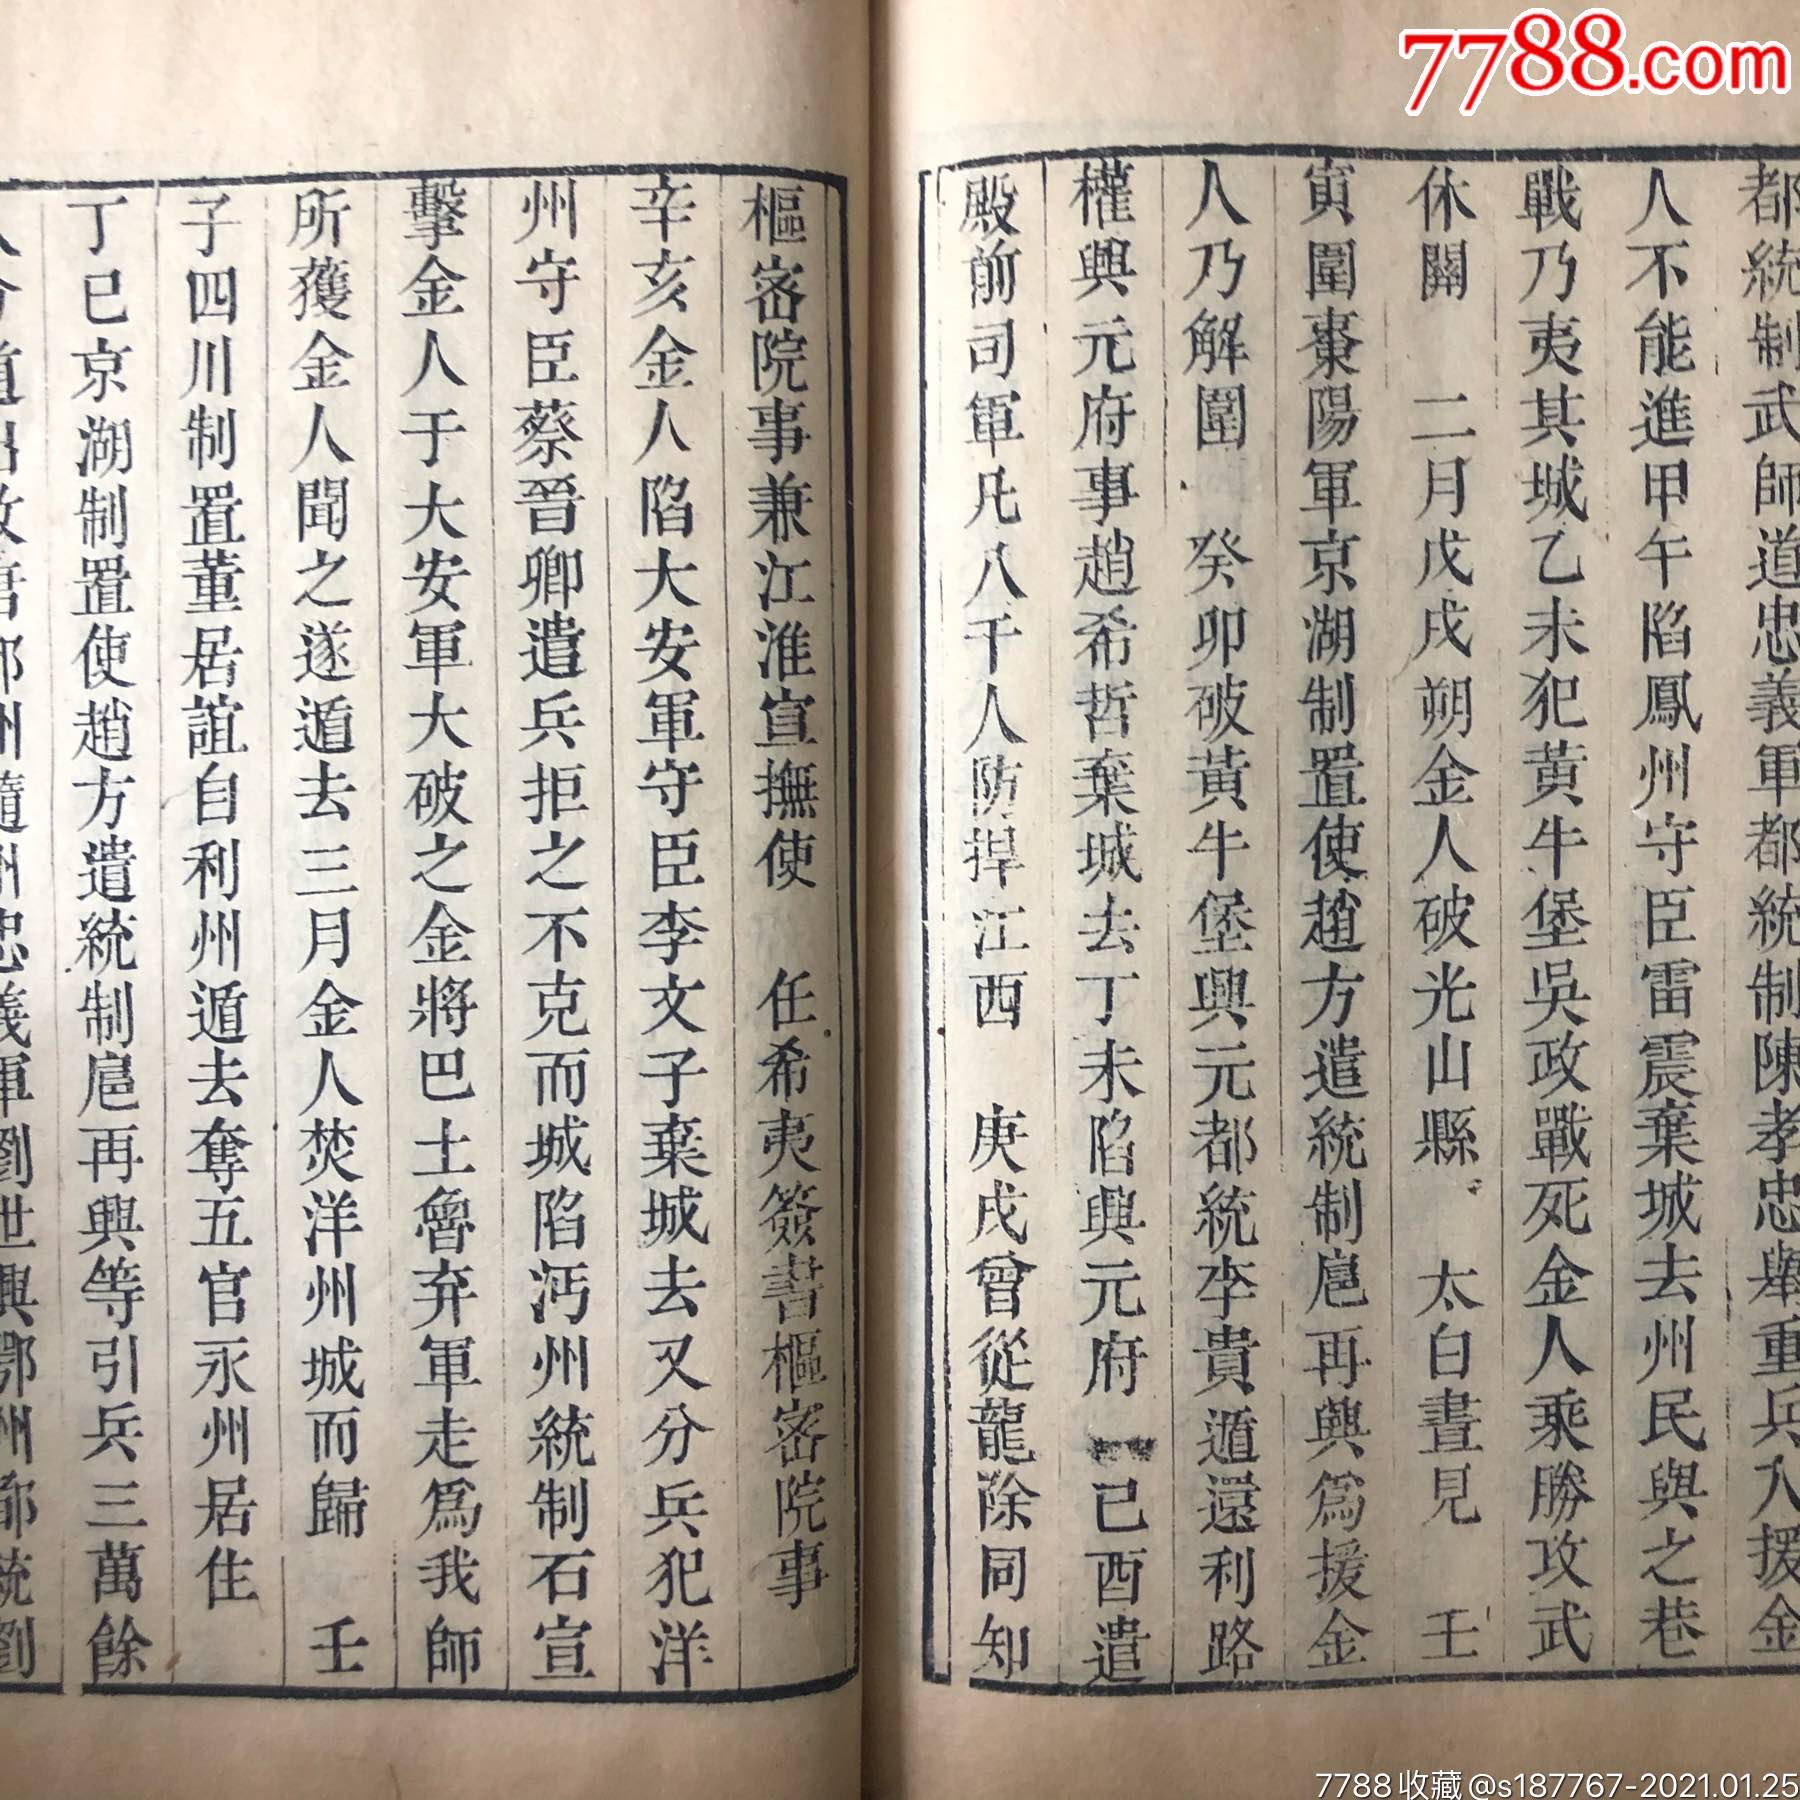 7788.com
都統制武師道忠義軍都統制陳孝忠舉重兵入援金
人不能進甲午陷鳳州守臣雷震棄城去州民與之巷
戰乃夷其城乙未犯黃牛堡吳政戰死金人乘勝攻武
休關　二月戊戌朔金人破光山縣　太白晝見　壬
寅圍棗陽軍京湖制置使趙方遣統制扈再興爲援金
人乃解圍　癸卯破黃牛堡興元都統李貴遁還利路
權興元府事趙希哲棄城去丁未陷興元府　己酉遣
殿前司軍凡八千人防捍江西　庚戌曾從龍除同知
樞密院事兼江淮宣撫使　任希夷簽書樞密院事
辛亥金人陷大安軍守臣李文子棄城去又分兵犯洋
州守臣蔡晉卿遣兵拒之不克而城陷沔州統制石宣
擊金人于大安軍大破之金將巴土魯弃軍走爲我師
所獲金人聞之遂遁去三月金人焚洋州城而歸　壬
子四川制置董居誼自利州遁去奪五官永州居住
丁巳京湖制置使趙方遣統制扈再興等引兵三萬餘
人分道出攻唐鄧州隨州忠義軍劉世興鄂州都統劉
7788收藏@s187767-2021.01.25